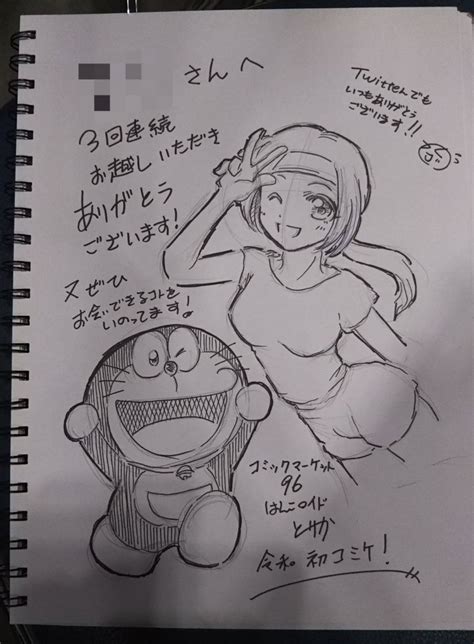 さんへ
3回連続
お越しいただき
ありがとう
ございます!
又ぜひ
お会いできるコトを
いのってます!
Twitterでも
いつもありがとう
ございます!!
コミックマーケット
96
はんこロイド
とサカ
令和初コミケ!